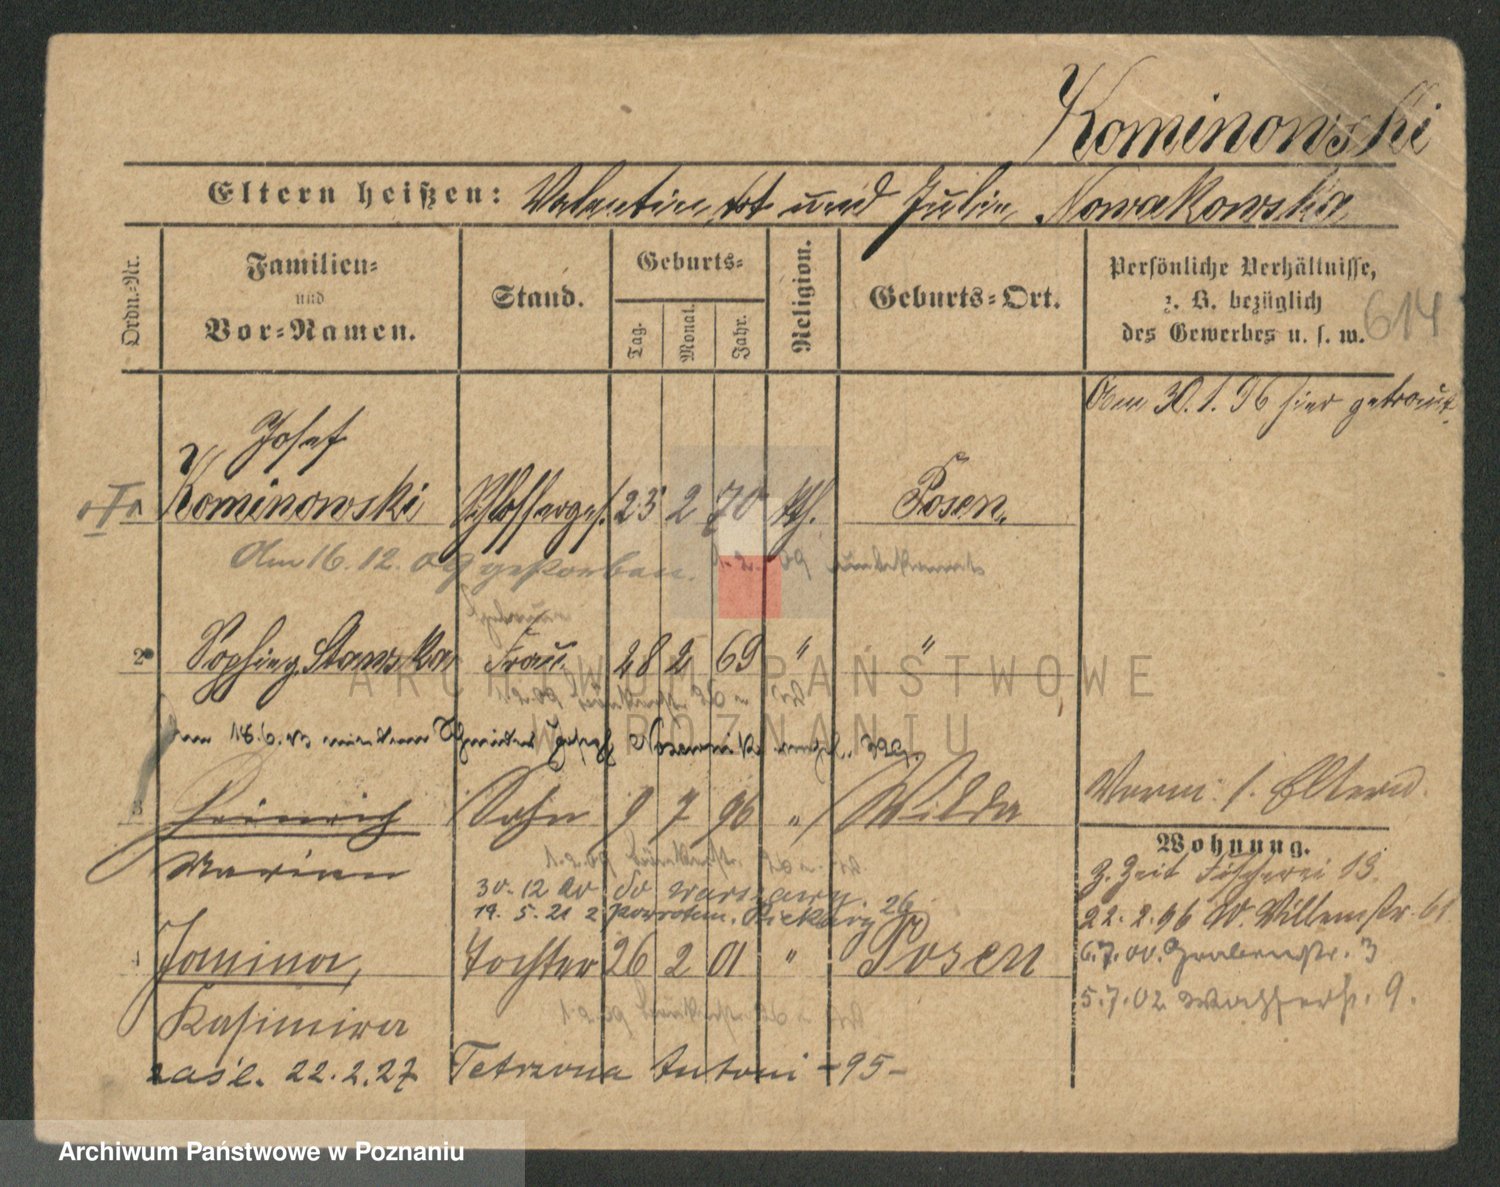 Kominowski
Eltern heißen: Valentin, tot und Julie, Nowakowska
Ordn.-Nr.
Familien-
und
Vor-Namen.
Stand.
Geburts-
Tag.
Monat.
Jahr.
Religion.
Geburts-Ort.
Persönliche Verhältnisse,
z. B. bezüglich
des Gewerbes u. s. w.
614
Am 30.1.96 hier getraut.
Josef
Kominowski Schlosserges. 23 2 70 kth. Posen.
Am 16.12.09 gestorben.
2 Sophie, Stawska Frau 28 2 69 " "
3 Heinrich Sohn 9 7 96 " Wilda
Marian
Verm. s. Eltern.
Wohnung.
z. Zeit Fischerei 13.
30.12.20 do Warszawy.
19.5.21 z powrotem, Piekary 26
22.2.96 W. Villenstr. 61
4 Janina, Tochter 26 2 01 " Posen
6.7.00. Grabenstr. 3
5.7.02 Wasserstr. 9.
Kasimira
zaśl. 22.2.27 Tetrzona Antoni -95-
ARCHIWUM PAŃSTWOWE
W POZNANIU
Archiwum Państwowe w Poznaniu